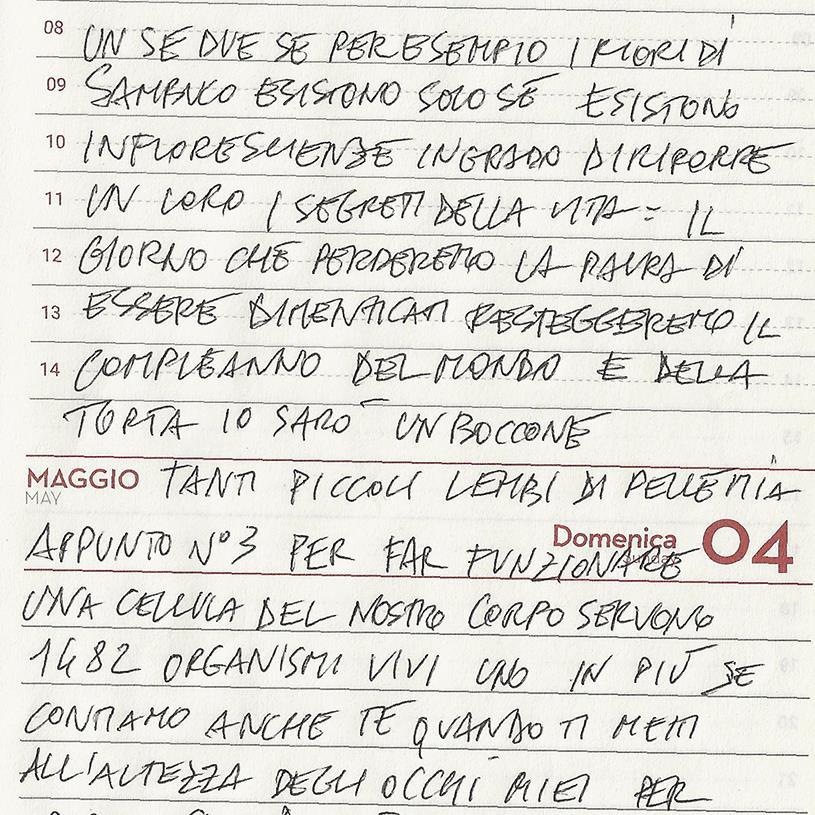 08 UN SE DUE SE PER ESEMPIO I FIORI DI
09 SAMBUCO ESISTONO SOLO SE ESISTONO
10 INFIORESCIENZE IN GRADO DI RIPORRE
11 UN LORO I SEGRETI DELLA VITA = IL
12 GIORNO CHE PERDEREMO LA PAURA DI
13 ESSERE DIMENTICATI FESTEGGEREMO IL
14 COMPLEANNO DEL MONDO E DELLA
TORTA IO SARO UN BOCCONE
MAGGIO TANTI PICCOLI LEMBI DI PELLE MIA
MAY
Domenica 04
APPUNTO N°3 PER FAR FUNZIONARE
UNA CELLULA DEL NOSTRO CORPO SERVONO
1482 ORGANISMI VIVI UNO IN PIÙ SE
CONTIAMO ANCHE TE QUANDO TI METTI
ALL'ALTEZZA DEGLI OCCHI MIEI PER